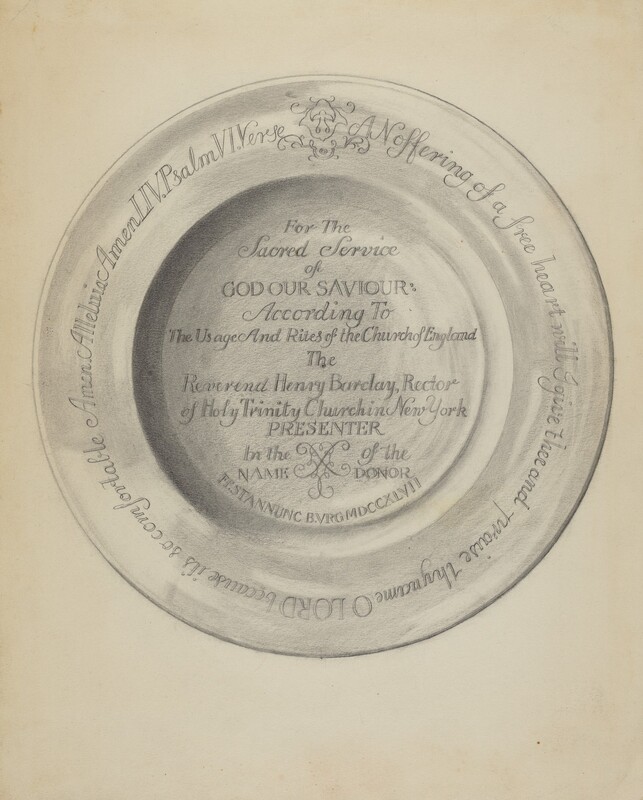 AN offering of a free heart will I give thee and praise thy name O LORD because it is so comfortable Amen. Alleluia Amen LIV. Psalm VI. Verse
For The
Sacred Service
of
GOD OUR SAVIOUR:
According To
The Usage And Rites of the Church of England
The
Reverend Henry Barclay, Rector
of Holy Trinity Church in New York
PRESENTER
In the of the
NAME DONOR
MDCCXLVII